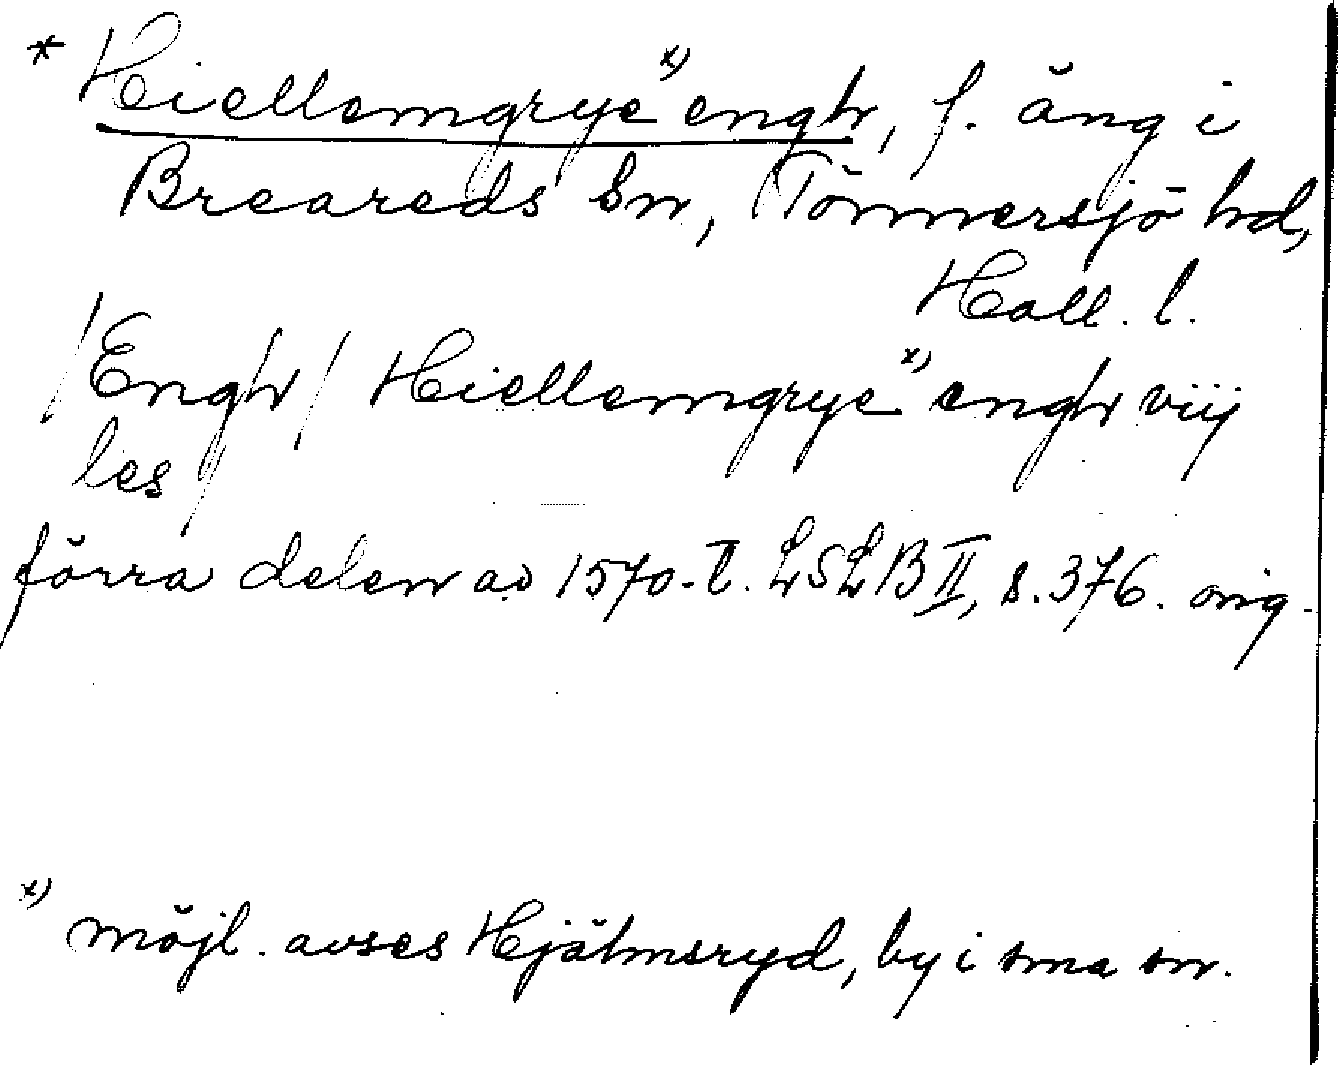 * Hiellemgrye x) engh, f. äng i
Breareds sn, Tönnersjö hd,
Hall. l.
/Engh/ Hiellemgrye x) engh viij
les
förra delen av 1570-t. LSLB II, s. 376. orig.
x) möjl. avses Hjälmsryd, by i sma sn.